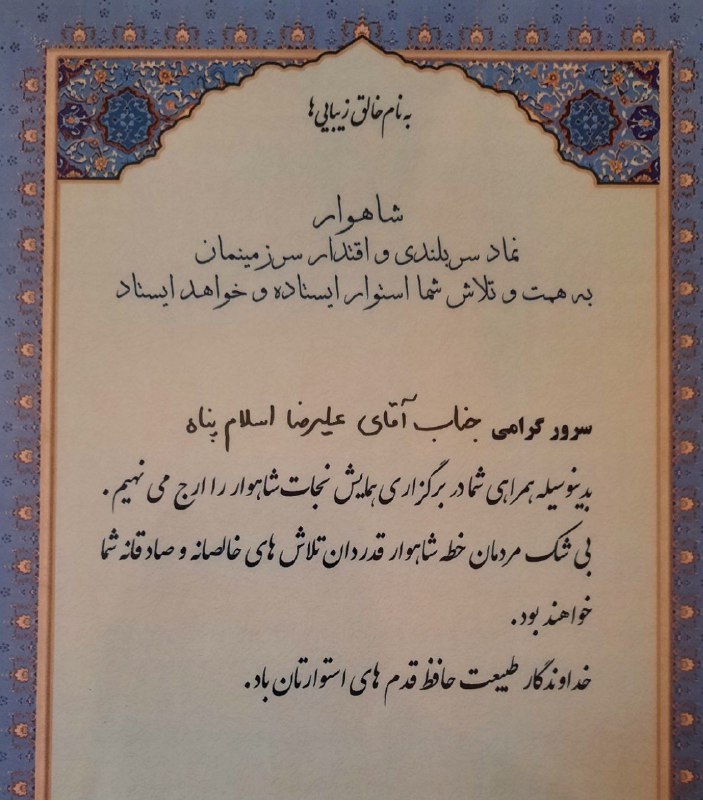 به نام خالق زیبایی ها
شاهوار
نماد سربلندی و اقتدار سرزمینمان
به همت و تلاش شما استوار ایستاده و خواهد ایستاد
سرور گرامی جناب آقای علیرضا اسلام پناه
بدینوسیله همراهی شما در برگزاری همایش نجات شاهوار را ارج می نهیم.
بی شک مردمان خطه شاهوار قدردان تلاش های خالصانه و صادقانه شما
خواهند بود.
خداوندگار طبیعت حافظ قدم های استوارتان باد.